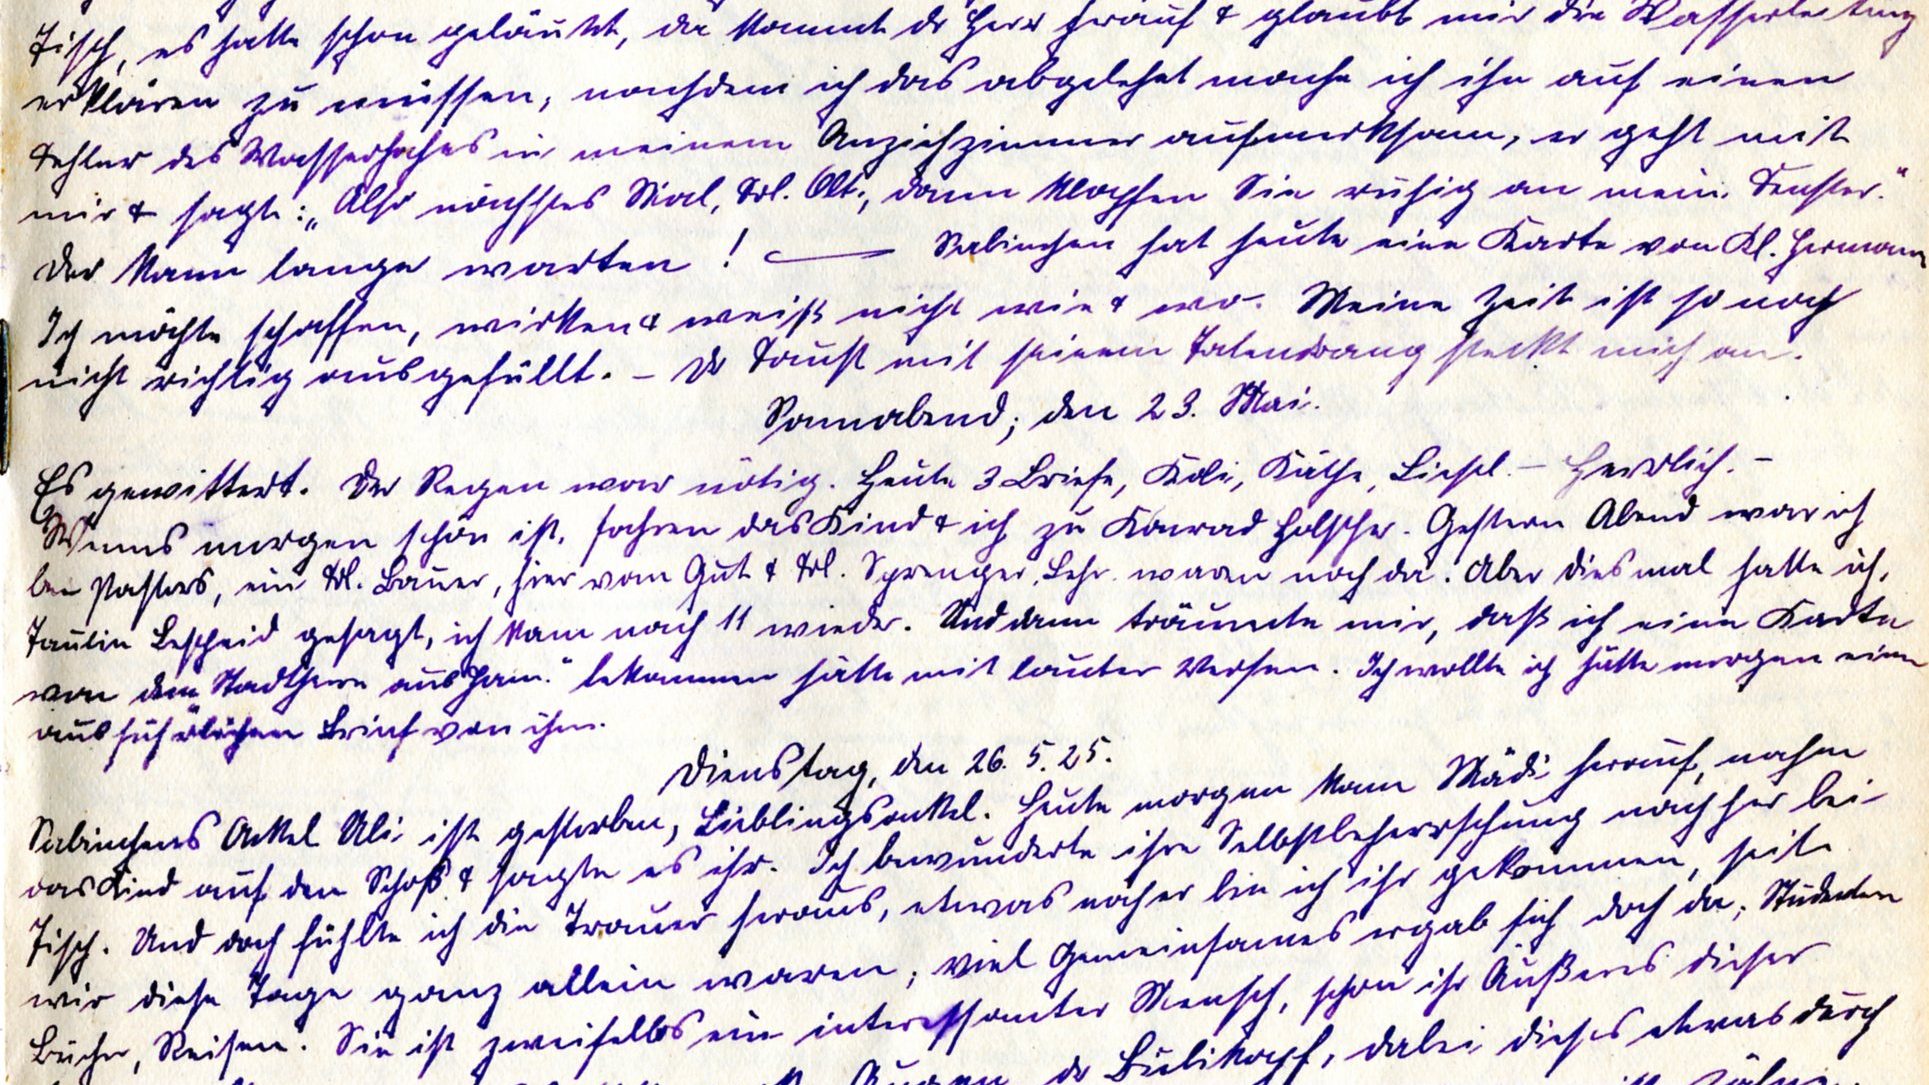 Tisch, es hatte schon geläutet, da kommt dr Herr herauf & glaubt mir die Wasserleitung
erklären zu müssen, nachdem ich das abgelehnt mache ich ihn auf einen
Fehler des Wasserhahns in meinem Anziehzimmer aufmerksam, er geht mit
mir & sagt: „Also nächstes Mal, Frl. Olt., dann klopfen Sie ruhig an mein Fenster."
Der kann lange warten! — Sabinchen hat heute eine Karte von Kl. Hermann
Ich möchte schaffen, wirken & weiß nicht wie & wo. Meine Zeit ist so noch
nicht richtig ausgefüllt. – Dr Faust mit seinem Tatendrang steckt mich an.
Sonnabend, den 23. Mai.
Es gewittert. Der Regen war nötig. Heute 3 Briefe, Käthe, Liesel. – Herrlich. –
Wenns morgen schön ist, fahren das Kind & ich zu Konrad Holscher. Gestern Abend war ich
bei Pastors, ein Frl. Bauer, hier vom Gut & Frl. Sprenger, Lehr. waren noch da. Aber diesmal hatte ich
Bescheid gesagt, ich kam nach 11 wieder. Und dann träumte mir, daß ich eine Karte
von dem Stadtherrn aus Ham." bekommen hätte mit lauter Versen. Ich wollte ich hätte morgen einen
ausführlichen Brief von ihm.
Dienstag, den 26. 5. 25.
Sabinchens Onkel Uli ist gestorben, Lieblingsonkel. Heute morgen kam Mädi herauf, nahm
das Kind auf den Schoß & sagte es ihr. Ich bewunderte ihre Selbstbeherrschung nachher bei
Tisch. Und doch fühlte ich die Trauer heraus, etwas näher bin ich ihr gekommen, seit
wir diese Tage ganz allein waren; viel Gemeinsames ergab sich doch da, Studenten
Bücher, Reisen. Sie ist zweifellos ein interessanter Mensch, schon ihr Äußeres dieser
Augen dr Bubikopf, dabei dieses etwas durch